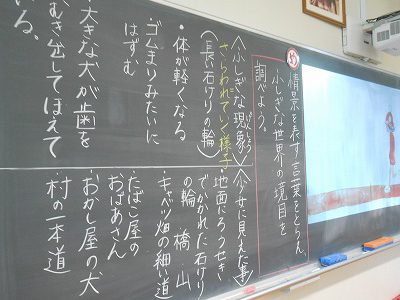 め
情景を表す言葉をとらえ、
ふしぎな世界の境目を
調べよう。
〈ふしぎな現象〉
げんしょう
さらわれていく様子
（長い石けりの輪）
・体が軽くなる
・ゴムまりみたいに
はずむ
・大きな犬が歯を
むき出してほえて
いる。
〈少女に見えた事〉
・地面にろうせき
でかかれた石けり
の輪　橋　山
・キャベツ畑の細い道
・たばこ屋の
おばあさん
・おかし屋の犬
・村の一本道